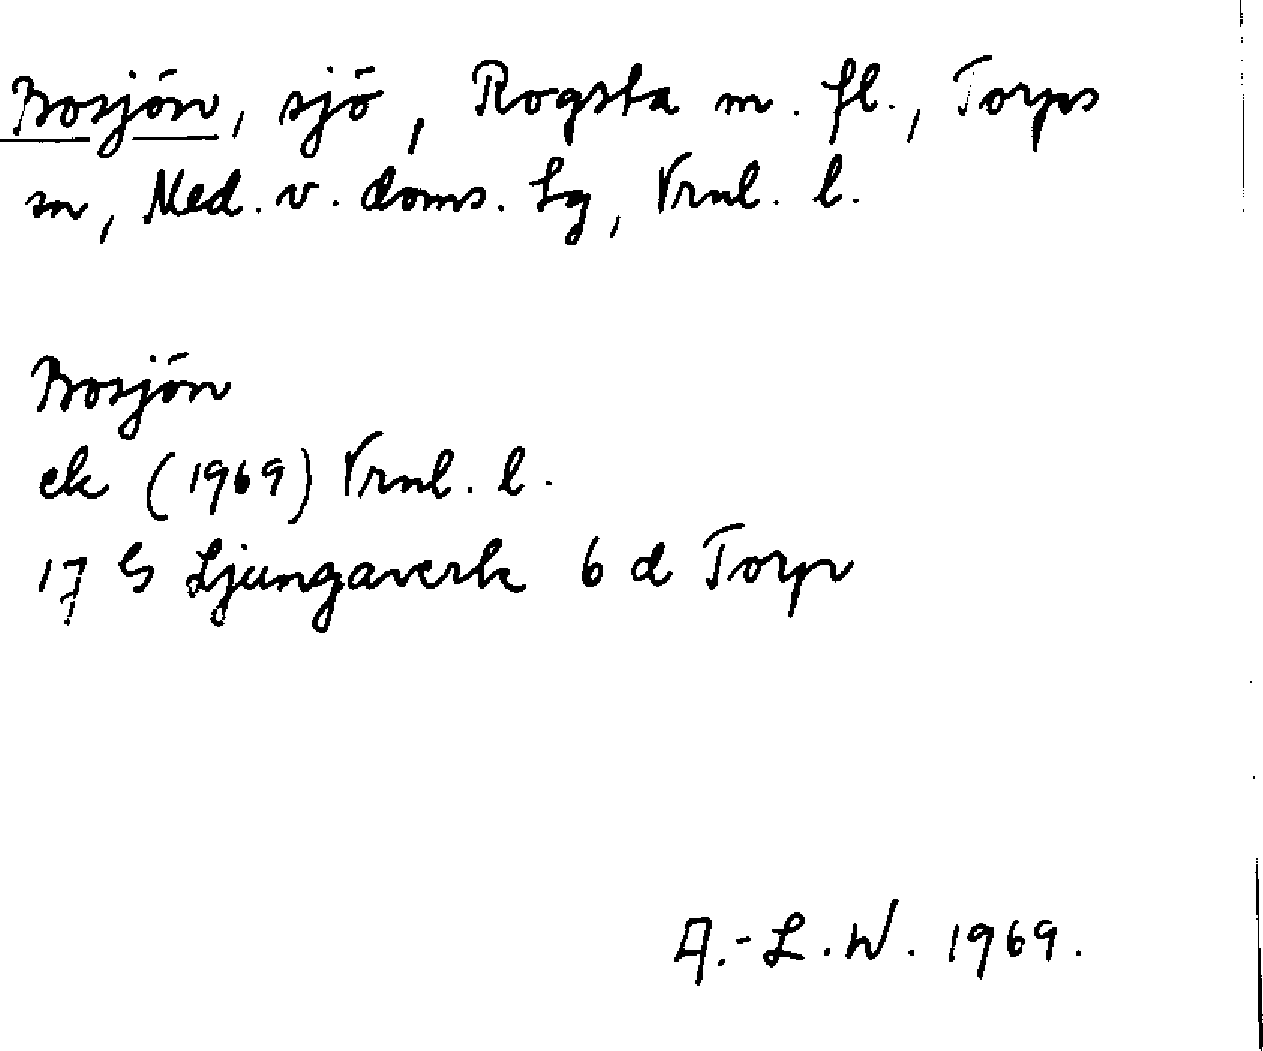 Bosjön, sjö, Rogsta m. fl., Torps
sn, Med. v. doms. Lg, Vrnl. l.
Bosjön
ek (1969) Vrnl. l.
17 G Ljungaverk 6 d Torp
A.-L.W. 1969.